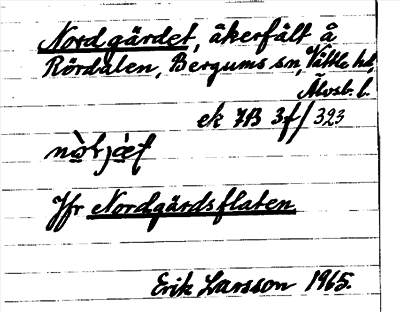 Nordgärdet, åkerfält å
Rördalen, Bergums sn, Vättle hd,
Älvsb. l.
ek 7B 3f/323
Jfr Nordgärdsflaten
Erik Larsson 1965.